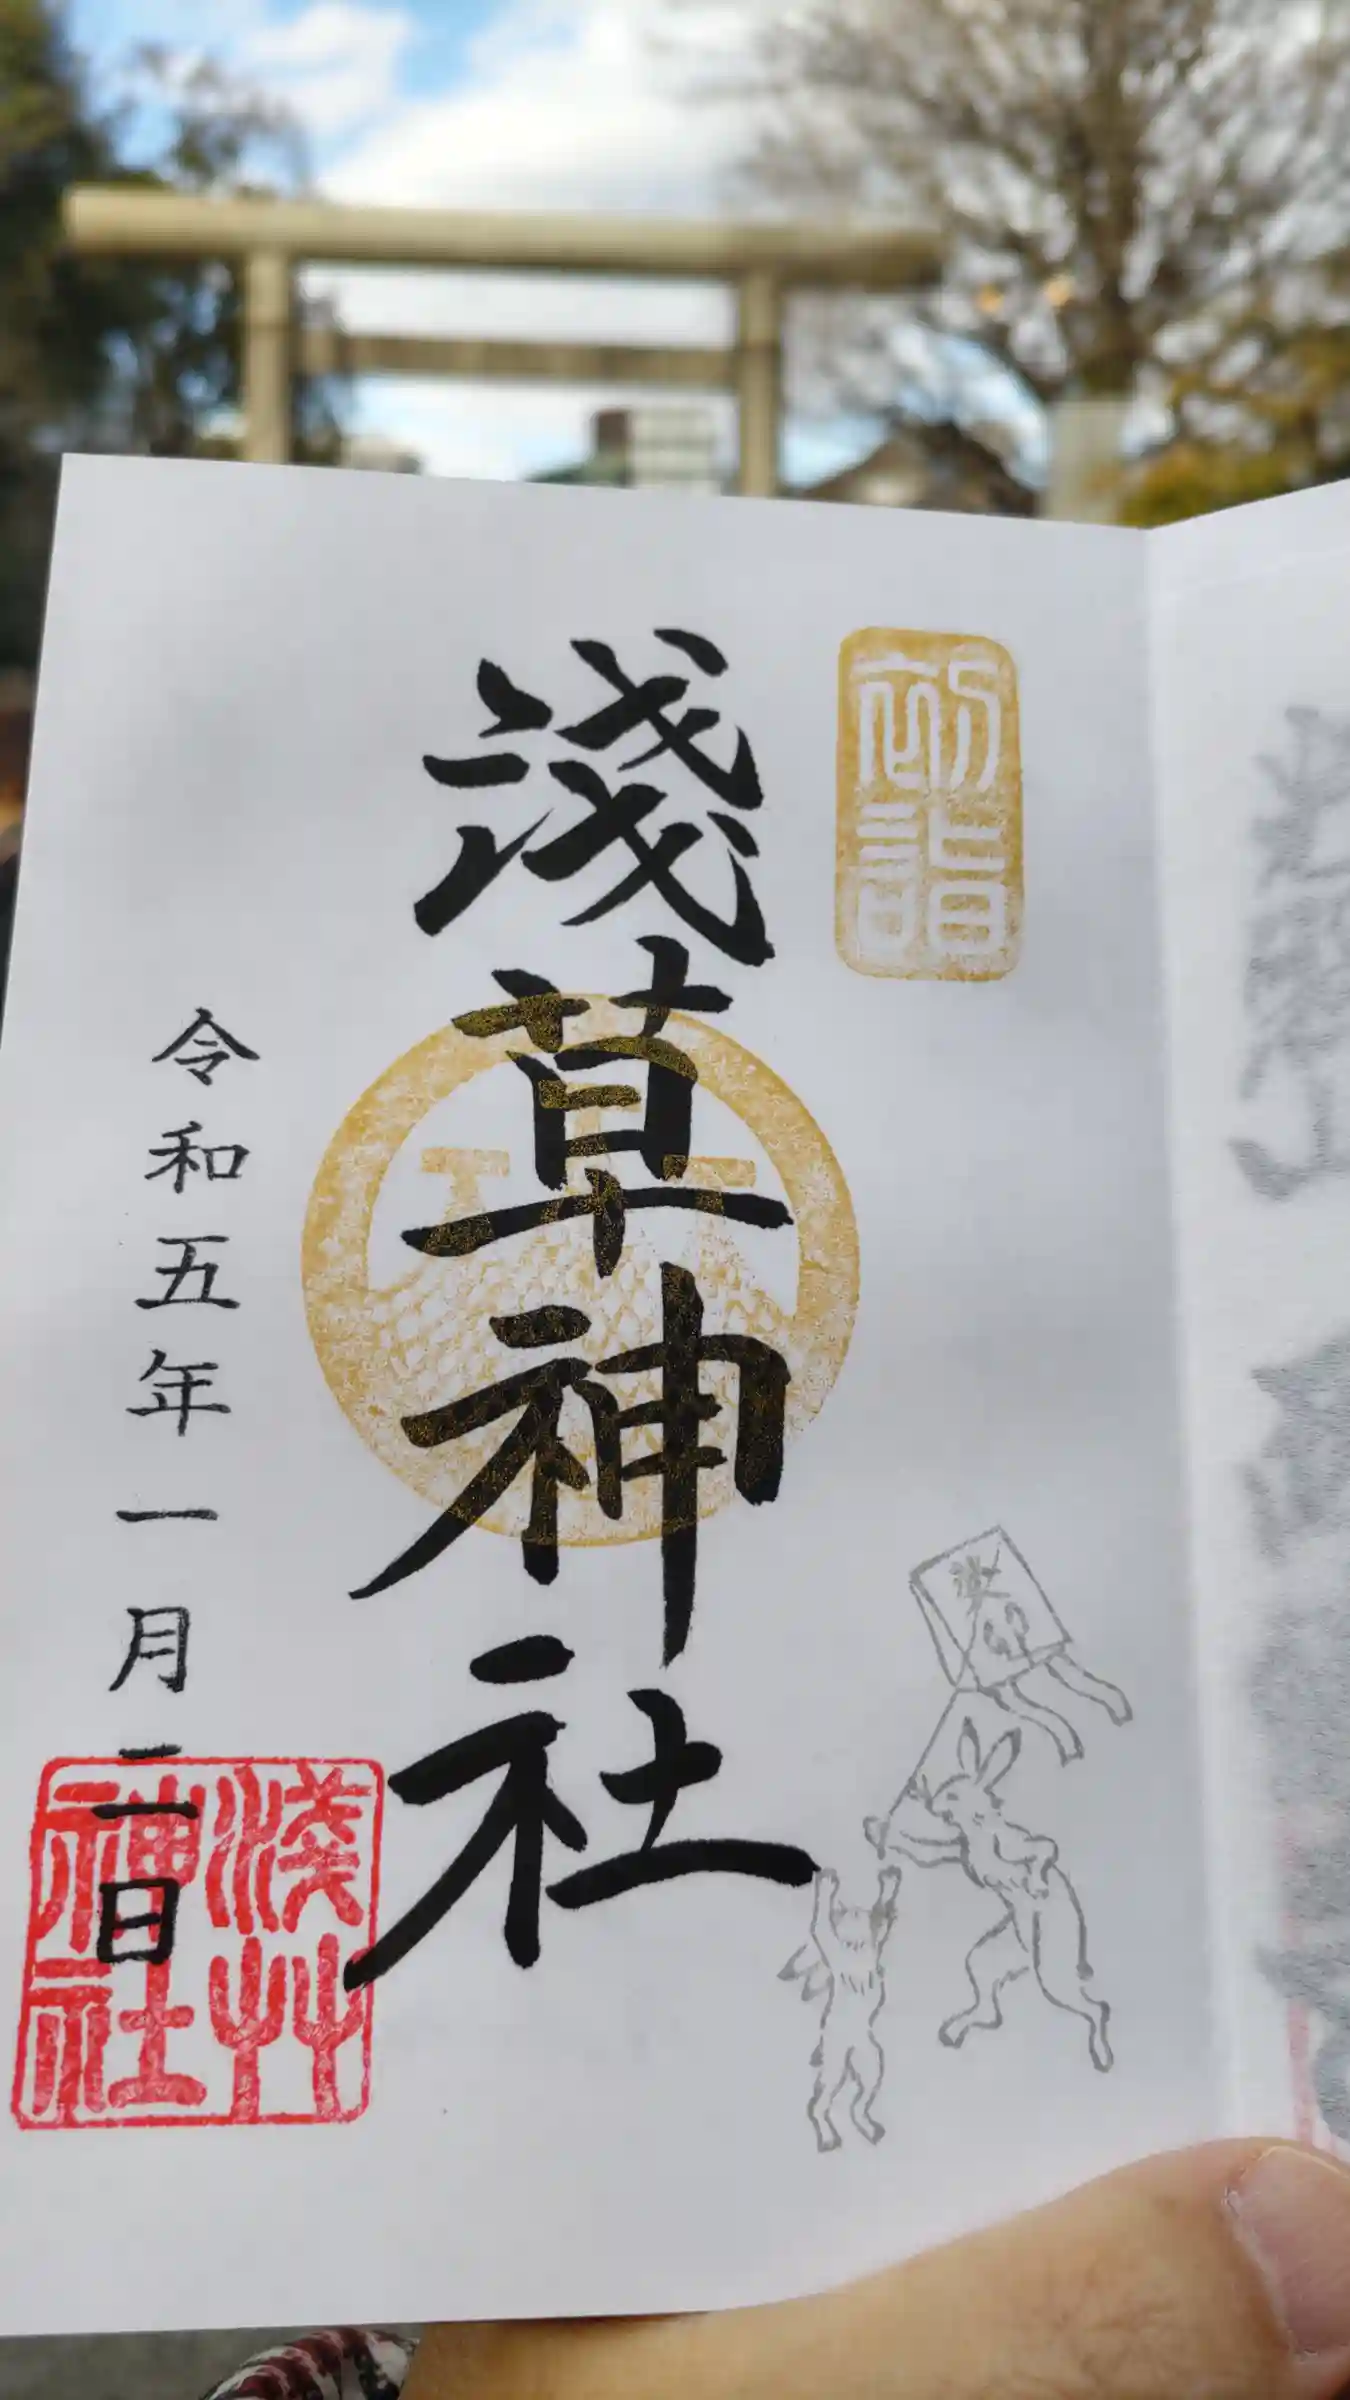 初詣
淺草神社
令和五年一月二日
淺艸神社